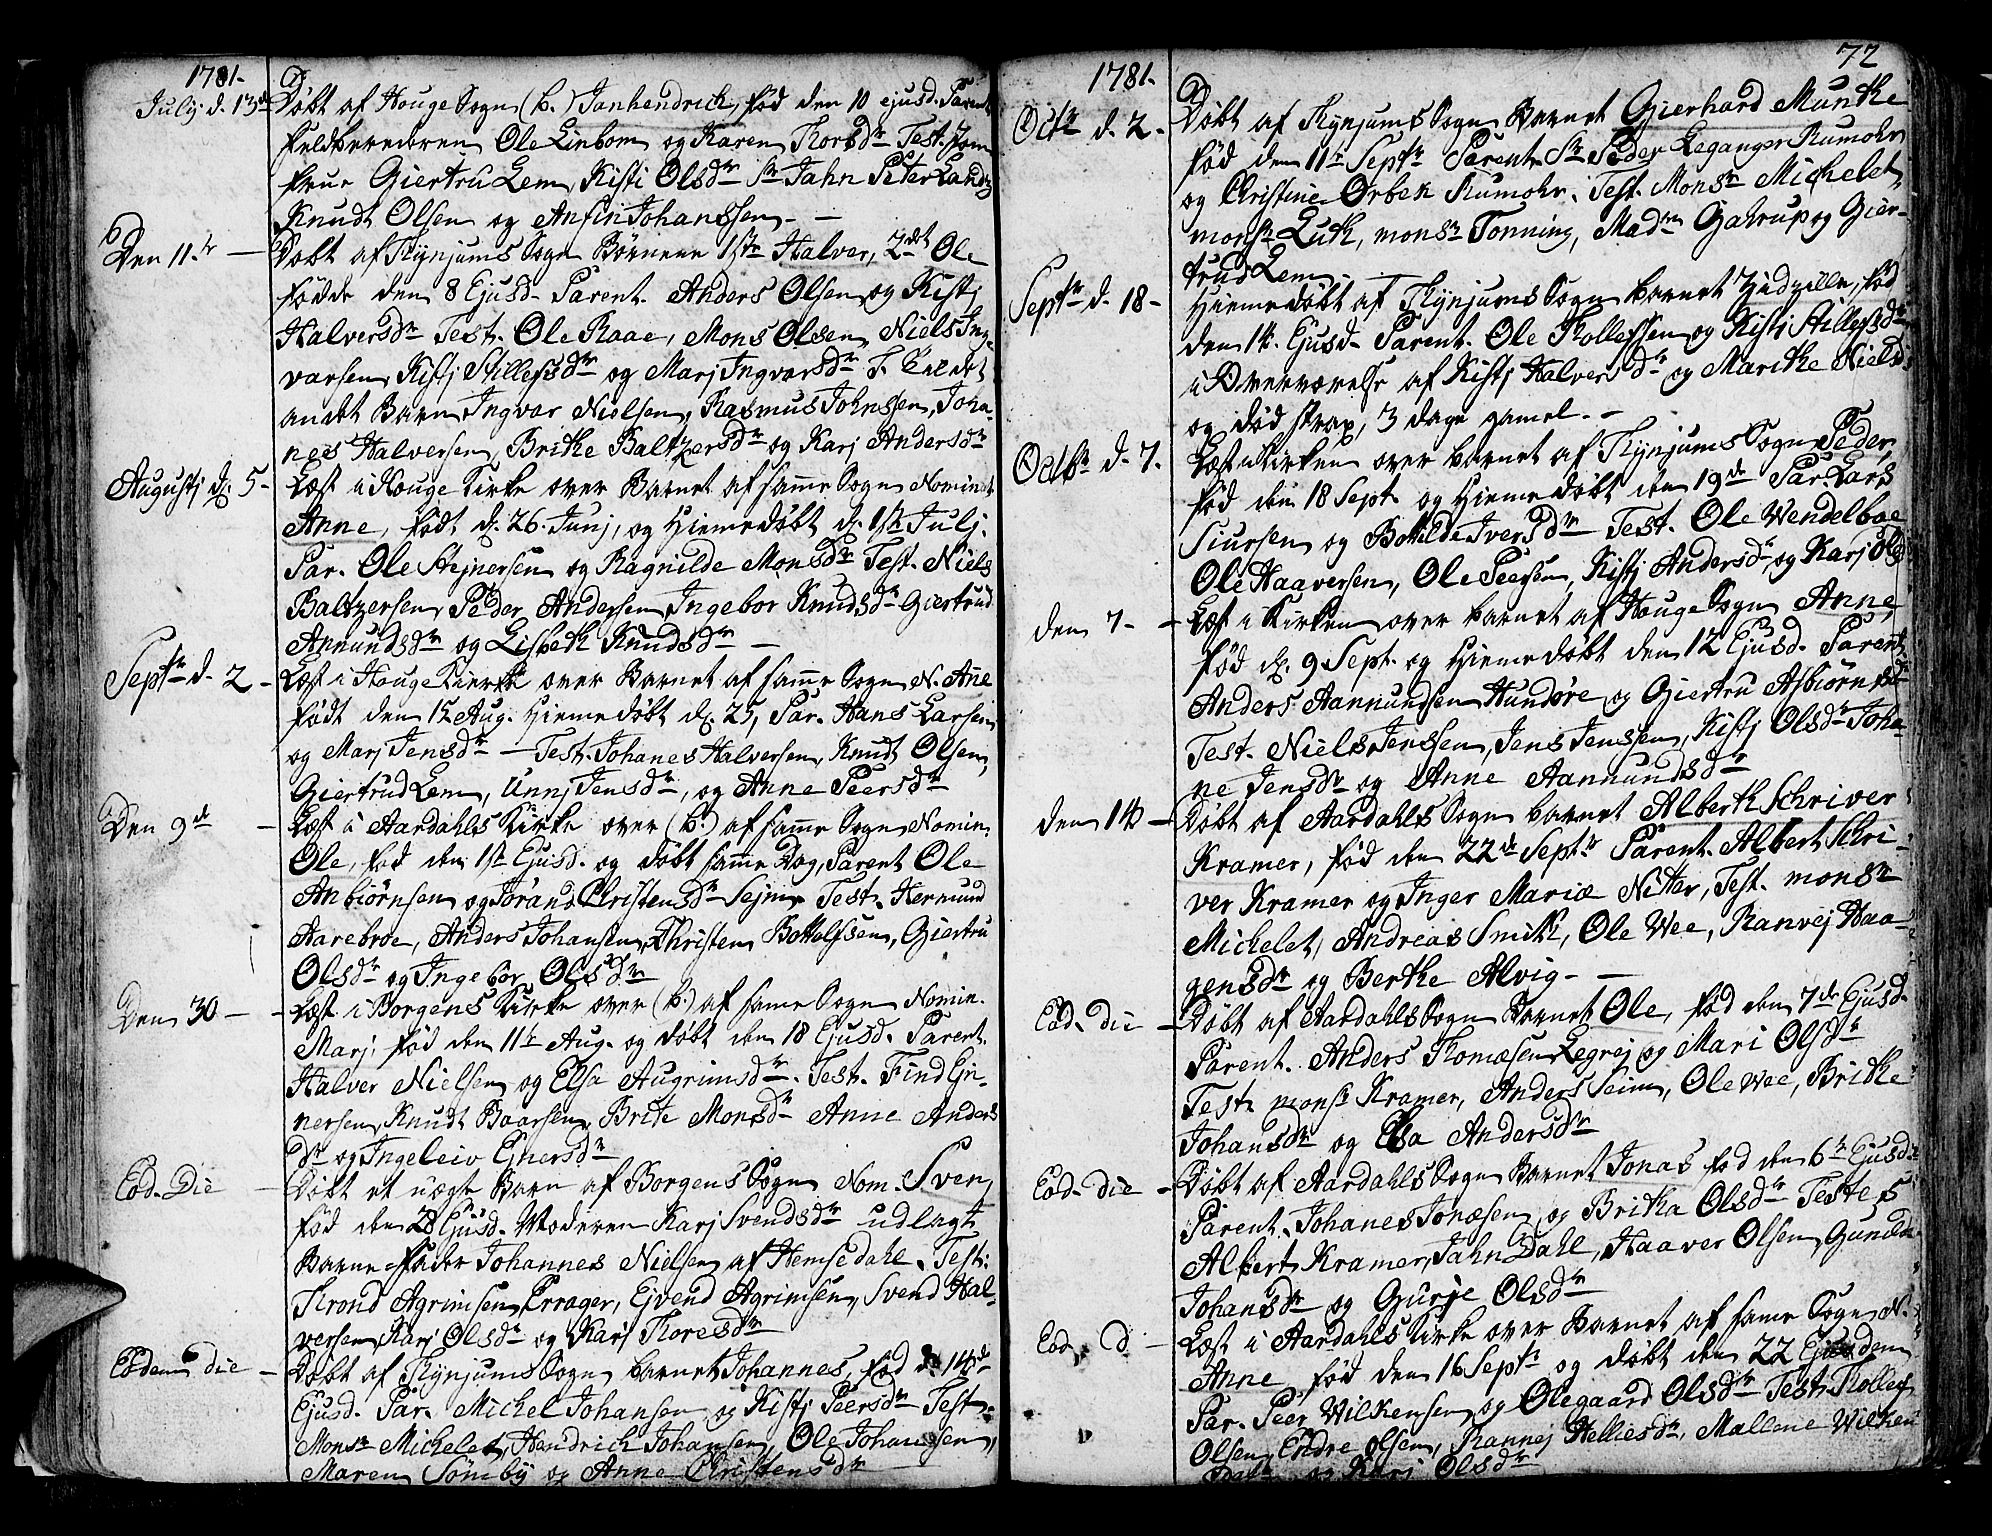 1781.
Julij d. 13de Døbt af Houge Sogn (b.) Janhendrich, fød den 10 ejusd. Parent
Feldberederen Ole Linbom og Karen Thorsdr Test. Jom-
frue Giertru Lem, Kisti Olsdr Sr Jahn Peter Landt
Knudt Olsen og Ansin Johanssen. —
Den 11te — Døbt af Thynjums Sogn Børnene 1ste Halver, 2det Ole
fødde den 8 Ejusd. Parent. Anders Olsen og Kistj
Halversdr Test. Ole Raae, Mons Olsen, Niels Ing-
varsen, Kistj Stillefsdr og Marj Ingvarsdr
andet Barn Ingvar Nielsen, Rasmus Johnssen, Joha-
nes Halversen, Brithe Baltzersdr og Karj Andersdr
Augustj d. 5 - Læst i Houge Kirke over Barnet af samme Sogn Nominat
Anne, født d. 26. Junj, og Hiemedøbt d. 1ste Julj.
Par. Ole Stejnersen og Ragnilde Monsdr Test. Niels
Baltzersen, Peder Andersen Ingebor Knudsdr Giertrud
Amundsdr og Lisbeth Knudsdr —
Septbr d. 2 - Læst i Houge Kierke over Barnet af samme Sogn N. Ane
født den 15 Aug. Hiemedøbt d. 25, Par. Hans Larsen
og Marj Jensdr — Test. Johanes Halversen, Knudt Olsen,
Giertrud Lem, Unnj Jensdr, og Anne Peersdr
Den 9de — Læst i Aardahls Kirke over (b.) af samme Sogn Nomin.
Ole, fød den 1ste Ejusd. og døbt samme Dag, Parent Ole
Anbiørnsen og Jørand Christensdr Sejm Test. Hermund
Aarebroe, Anders Johansen, Christen Bottolfsen, Giertru
Olsdr og Ingebor Olsdr
Den 30 — Læst i Borgens Kirke over (b.) af samme Sogn Nomin.
Marj, fød den 11te Aug. og døbt den 18 Ejusd. Parent.
Halver Nielsen og Elsa Augrimsdr. Test. Find Ej-
nersen, Knudt Baarsen, Brite Monsdr Anne Anders
dr og Ingeleiv Ejnersdr
Eod. Die — Døbt et uægte Barn af Borgens Sogn Nom. Sven,
fød den 28 Ejusd. Moderen Karj Svendsdr udlagt
Barne-Fader Johannes Nielsen af Hemsedahl. Test:
Thrond Agrimsen Errager, Ejvend Agrimsen, Svend Hal-
versen, Karj Olsdr og Karj Thoresdr
Eodem die — Døbt af Thynjums Sogn barnet Johannes, fød d. 14de
Ejusd. Par. Michel Johansen og Kistj Peersdr Test.
Monsr Michelet, Hendrich Johansen, Ole Johansen,
Maren Sømby og Anne Christensdr
72
1781.
Octbr d. 2. Døbt af Thynjums Sogn Barnet Gierhard Munthe
fød den 11te Septbr Parent Sr Peder Leganger Rumohr
og Christine Ørbek Rumohr. Test. Monsr Michelet,
monsr Luth, monsr Tonning, Madm Gatrup og Gier-
trud Lem.
Septbr d. 18 - Hiemedøbt af Thynjums Sogn barnet fød
den 14. Ejusd. Parent. Ole Thollefsen og Kistj Stillefsdr
i Overværelse af Kistj Halversdr og Marithe Niels
og død strax, 3 dage gamel. —
Octbr d. 7. Læst i Kirken over barnet af Thynjums Sogn Peder,
fød den 18 Sept. og Hiemedøbt den 19de Par. Lars
Siursen og Botilda Iversdr Test. Ole Wendelboe
Ole Haaversen, Ole Peersen, Kistj Andersdr og Karj Ols
den 7 - Læst i Kirken over barnet af Houge Sogn Anne,
fød d. 9 Sept. og Hiemedøbt den 12 Ejusd. Parent.
Anders Aamundsen Hundøre og Giertru Asbiørnsdr
Test. Niels Jenssen, Jens Jenssen, Kistj Olsdr Joha-
ne Jensdr og Anne Aamundsdr
den 14 — Døbt af Aardahls Sogn barnet Alberth Schriver
Kramer, fød den 22de Septbr Parent. Albert Schri-
ver Kramer og Inger Mariæ Nitter, Test. monsr
Michelet, Andreas Smith, Ole Wee, Ranvej Haa-
gensdr og Berthe Alvig. —
Eod. die — Døbt af Aardahls Sogn Barnet Ole, fød den 7de Ejusd.
Parent. Anders Thomæsen Legrej og Mari Olsdr
Test. monsr Kramer, Anders Seim, Ole Wee, Brithe
Johansdr og Elsa Andersdr
Eod. die — Døbt af Aardahls Sogn Barnet Jonas fød den 6te Ejusd.
Parent. Johanes Jonæsen og Britha Olsdr Testes
Albert Kramer, Jahn Dahl, Haaver Olsen, Gunilda
Johansdr og Gurje Olsdr
Eod. D. — Læst i Aardahls Kirke over Barnet af samme Sogn N.
Anne fød den 16 Septbr og døbt den 22 Ejusdem
Par. Peer Wilkensen og Olegaard Olsdr Test. Thollef
Olsen, Endre Olsen, Rannej Helliesdr, Mallene Wilken
og Karj Olsdr